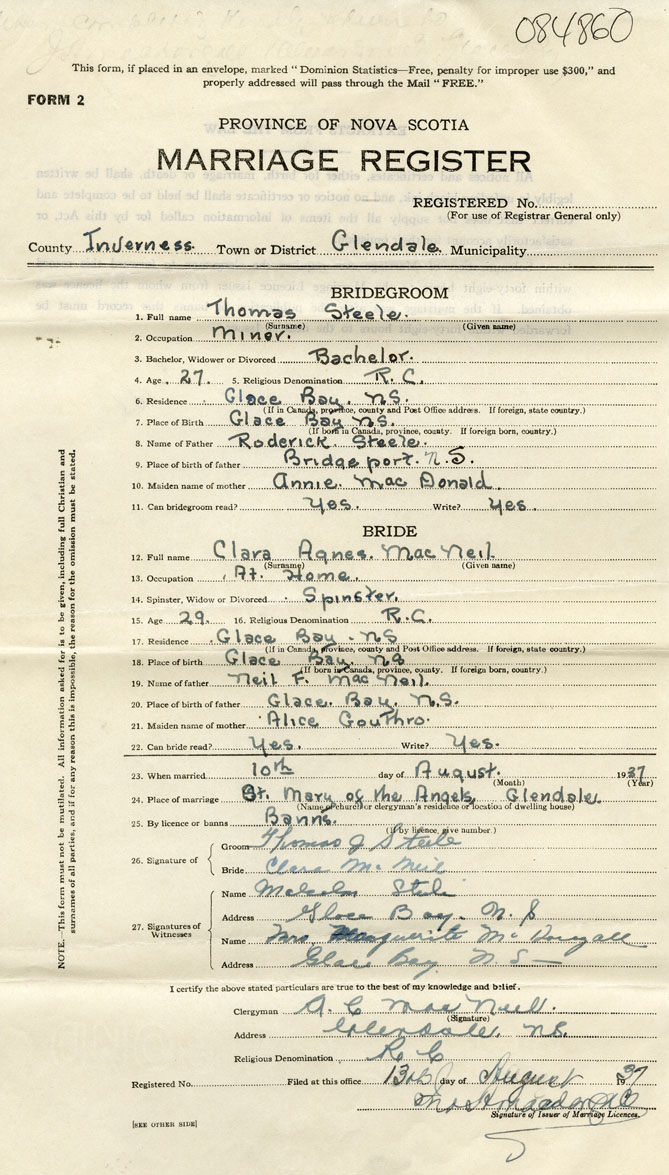 084860
This form, if placed in an envelope, marked “ Dominion Statistics—Free, penalty for improper use $300,” and
properly addressed will pass through the Mail “ FREE.”
FORM 2
PROVINCE OF NOVA SCOTIA
MARRIAGE REGISTER
REGISTERED No.
(For use of Registrar General only)
County Inverness. Town or District Glendale. Municipality
BRIDEGROOM
1. Full name Thomas Steele.
(Surname) (Given name)
2. Occupation Miner.
3. Bachelor, Widower or Divorced Bachelor.
4. Age 27. 5. Religious Denomination R.C.
6. Residence Glace Bay. NS.
(If in Canada, province, county and Post Office address. If foreign, state country.)
7. Place of Birth Glace Bay NS.
(If born in Canada, province, county. If foreign born, country.)
8. Name of Father Roderick Steele.
9. Place of birth of father Bridgeport. N.S.
10. Maiden name of mother Annie. Mac Donald.
11. Can bridegroom read? Yes. Write? Yes.
BRIDE
12. Full name Clara Agnes. MacNeil.
(Surname) (Given name)
13. Occupation At. Home.
14. Spinster, Widow or Divorced Spinster.
15. Age 29. 16. Religious Denomination R.C.
17. Residence Glace Bay - NS
(If in Canada, province, county and Post Office address. If foreign, state country.)
18. Place of birth Glace Bay. NS
(If born in Canada, province, county. If foreign born, country.)
19. Name of father Neil F. MacNeil.
20. Place of birth of father Glace. Bay. N.S.
21. Maiden name of mother Alice Gouthro.
22. Can bride read? Yes. Write? Yes.
23. When married 10th day of August. 1937
(Month) (Year)
24. Place of marriage St. Mary of the Angels, Glendale.
(Name of church or clergyman's residence or location of dwelling house)
25. By licence or banns Banns.
(If by licence, give number.)
26. Signature of
Groom Thomas J Steele
Bride Clara Mc Neil
27. Signatures of Witnesses
Name Malcolm Steele
Address Glace Bay. N. S
Name Mrs. Marguerite Mc Dougall
Address Glace Bay N. S—
I certify the above stated particulars are true to the best of my knowledge and belief.
Clergyman A. C. MacNeill.
(Signature)
Address Glendale. NS.
Religious Denomination R C
Registered No. Filed at this office 13th day of August 1937
Signature of Issuer of Marriage Licences.
[SEE OTHER SIDE]
NOTE.—This form must not be mutilated. All information asked for is to be given, including full Christian and
surnames of all parties, and if for any reason this is impossible, the reason for the omission must be stated.